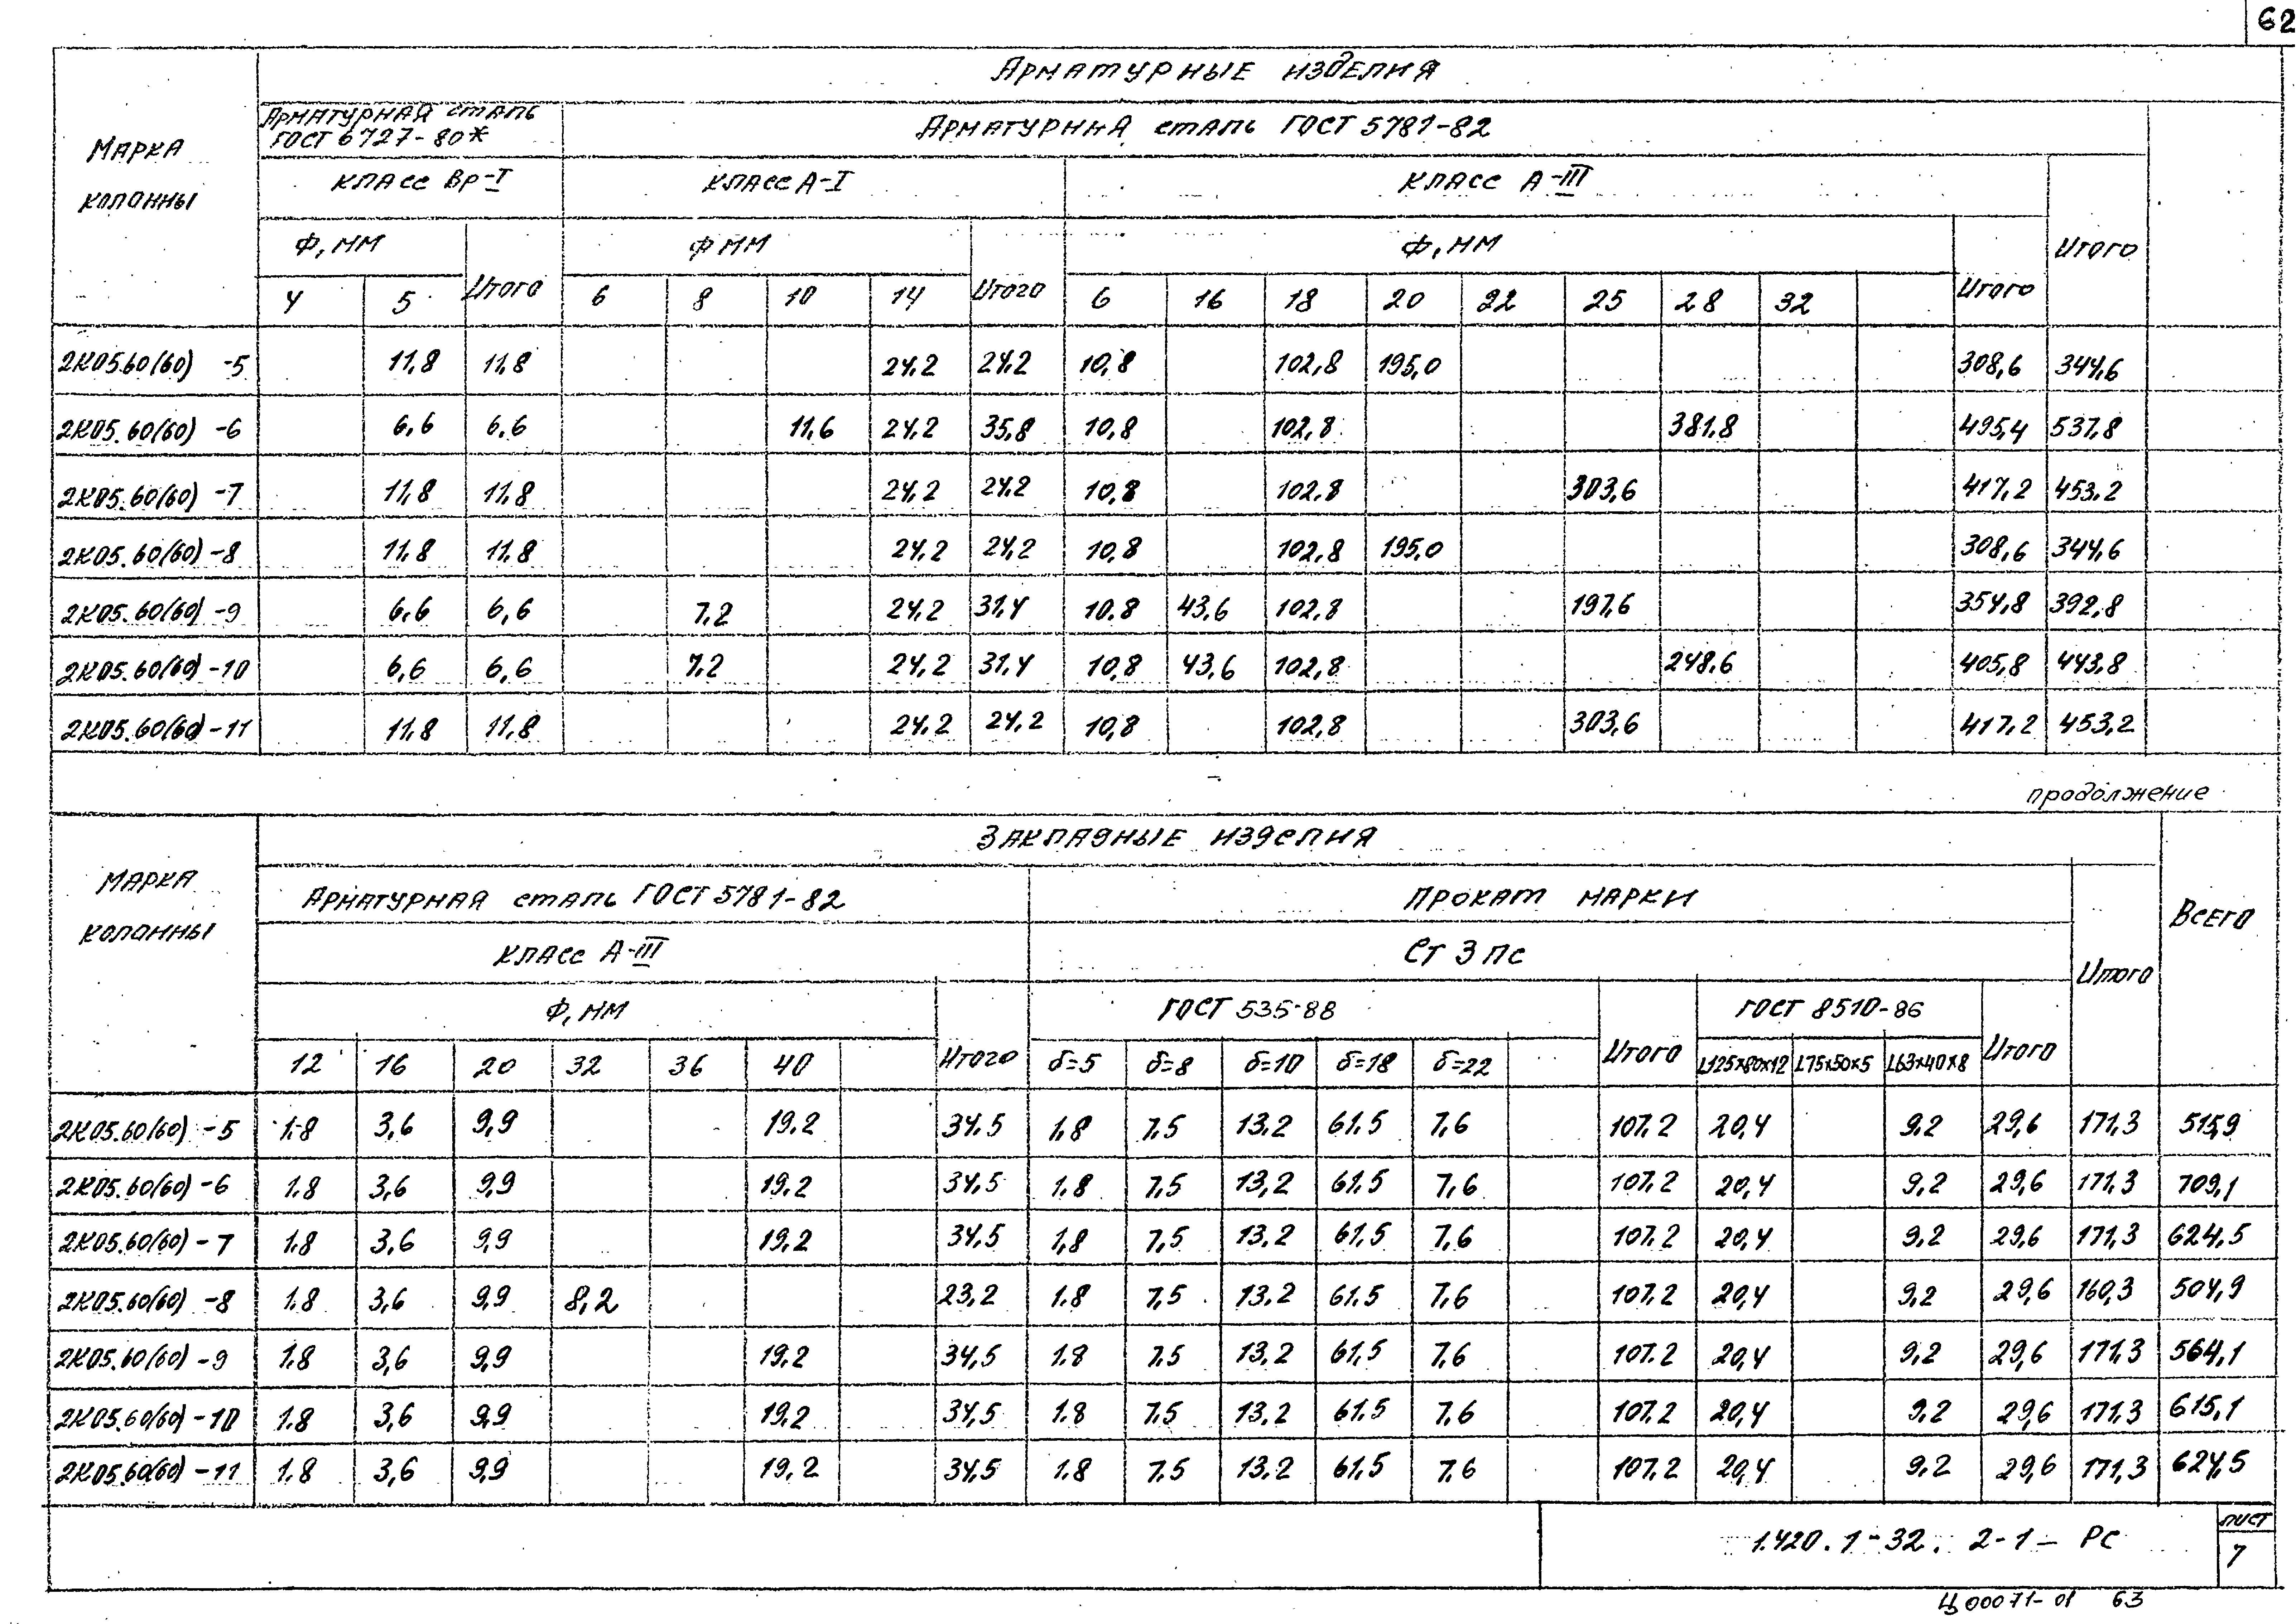 62
Арматурные изделия
Марка колонны
Арматурная сталь ГОСТ 6727-80*
Арматурная сталь ГОСТ 5781-82
Класс Вр-I
Класс А-I
Класс А-III
Ф, мм
Итого
Ф мм
Итого
Ф, мм
Итого
Итого
4 5 6 8 10 14 6 16 18 20 22 25 28 32
2К05.60(60) -5 11,8 11,8 24,2 24,2 10,8 102,8 195,0 308,6 344,6
2К05.60(60) -6 6,6 6,6 11,6 24,2 35,8 10,8 102,8 381,8 495,4 537,8
2К05.60(60) -7 11,8 11,8 24,2 24,2 10,8 102,8 303,6 417,2 453,2
2К05.60(60) -8 11,8 11,8 24,2 24,2 10,8 102,8 195,0 308,6 344,6
2К05.60(60) -9 6,6 6,6 7,2 24,2 31,4 10,8 43,6 102,8 197,6 354,8 392,8
2К05.60(60) -10 6,6 6,6 7,2 24,2 31,4 10,8 43,6 102,8 248,6 405,8 443,8
2К05.60(60) -11 11,8 11,8 24,2 24,2 10,8 102,8 303,6 417,2 453,2
продолжение
Закладные изделия
Марка колонны
Арматурная сталь ГОСТ 5781-82
Прокат марки
Всего
Класс А-III
Ст 3 пс
Итого
Ф, мм
ГОСТ 535-88
ГОСТ 8510-86
12 16 20 32 36 40 Итого δ=5 δ=8 δ=10 δ=18 δ=22 Итого L125х80х12 L75х50х5 L63х40х8 Итого
2К05.60(60) -5 1,8 3,6 9,9 19,2 34,5 1,8 7,5 13,2 61,5 7,6 107,2 20,4 9,2 29,6 171,3 515,9
2К05.60(60) -6 1,8 3,6 9,9 19,2 34,5 1,8 7,5 13,2 61,5 7,6 107,2 20,4 9,2 29,6 171,3 709,1
2К05.60(60) -7 1,8 3,6 9,9 19,2 34,5 1,8 7,5 13,2 61,5 7,6 107,2 20,4 9,2 29,6 171,3 624,5
2К05.60(60) -8 1,8 3,6 9,9 8,2 23,2 1,8 7,5 13,2 61,5 7,6 107,2 20,4 9,2 29,6 160,3 504,9
2К05.60(60) -9 1,8 3,6 9,9 19,2 34,5 1,8 7,5 13,2 61,5 7,6 107,2 20,4 9,2 29,6 171,3 564,1
2К05.60(60) -10 1,8 3,6 9,9 19,2 34,5 1,8 7,5 13,2 61,5 7,6 107,2 20,4 9,2 29,6 171,3 615,1
2К05.60(60) -11 1,8 3,6 9,9 19,2 34,5 1,8 7,5 13,2 61,5 7,6 107,2 20,4 9,2 29,6 171,3 624,5
1.420.1-32. 2-1- РС
лист
7
Ц00071-01 63